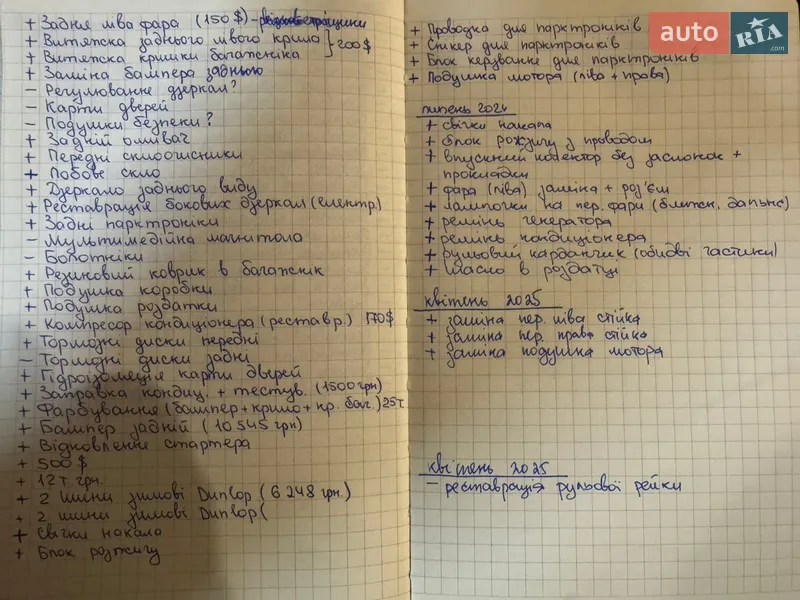 + Задня ліва фара (150 $) -
+ Витяжка заднього лівого крила } 200 $
+ Витяжка кришки багажніка
+ Заміна бампера заднього
– Регулювання дзеркал?
– Карти дверей
– Подушки безпеки?
+ Задній омивач
+ Передні склоочисники
+ Лобове скло
+ Дзеркало заднього виду
+ Реставрація бокових дзеркал (електр.)
+ Задні парктроніки
– Мультимедійка магнітола
– Болотніки
+ Резиновий коврик в багажнік
+ Подушка коробки
+ Подушка роздатки
+ Компресор кондиціонера (реставр.) 170$
+ Тормозні диски передні
– Тормозні диски задні
+ Гідроізоляція карти дверей
+ Заправка кондиц. + тестув. (1500 грн)
+ Фарбування (бампер + крило + кр. баг.) 25т.
+ Бампер задній (10 545 грн)
+ Відновлення стартера
+ 500 $
+ 12 т. грн.
+ 2 шини зимові Dunlop (6 248 грн.)
+ 2 шини зимові Dunlop (
+ Свічки накала
+ Блок розжигу
+ Проводка для парктроніків
+ Спікер для парктроніків
+ Блок керування для парктроніків
+ Подушка мотора (ліва + права)
липень 2024
+ свічки накала
+ блок розжигу з проводом
+ впускний колектор без заслонок +
прокладки
+ фара (ліва) заміна + роз'єм
+ лампочки на пер. фари (ближн, дальнє)
+ ремінь генератора
+ ремінь кондиціонера
+ рульовий карданчик (обидві частини)
+ масло в роздатці
квітень 2025
+ заміна пер. ліва стійка
+ заміна пер. права стійка
+ заміна подушка мотора
квітень 2025
– реставрація рульової рейки
auto RIA .com